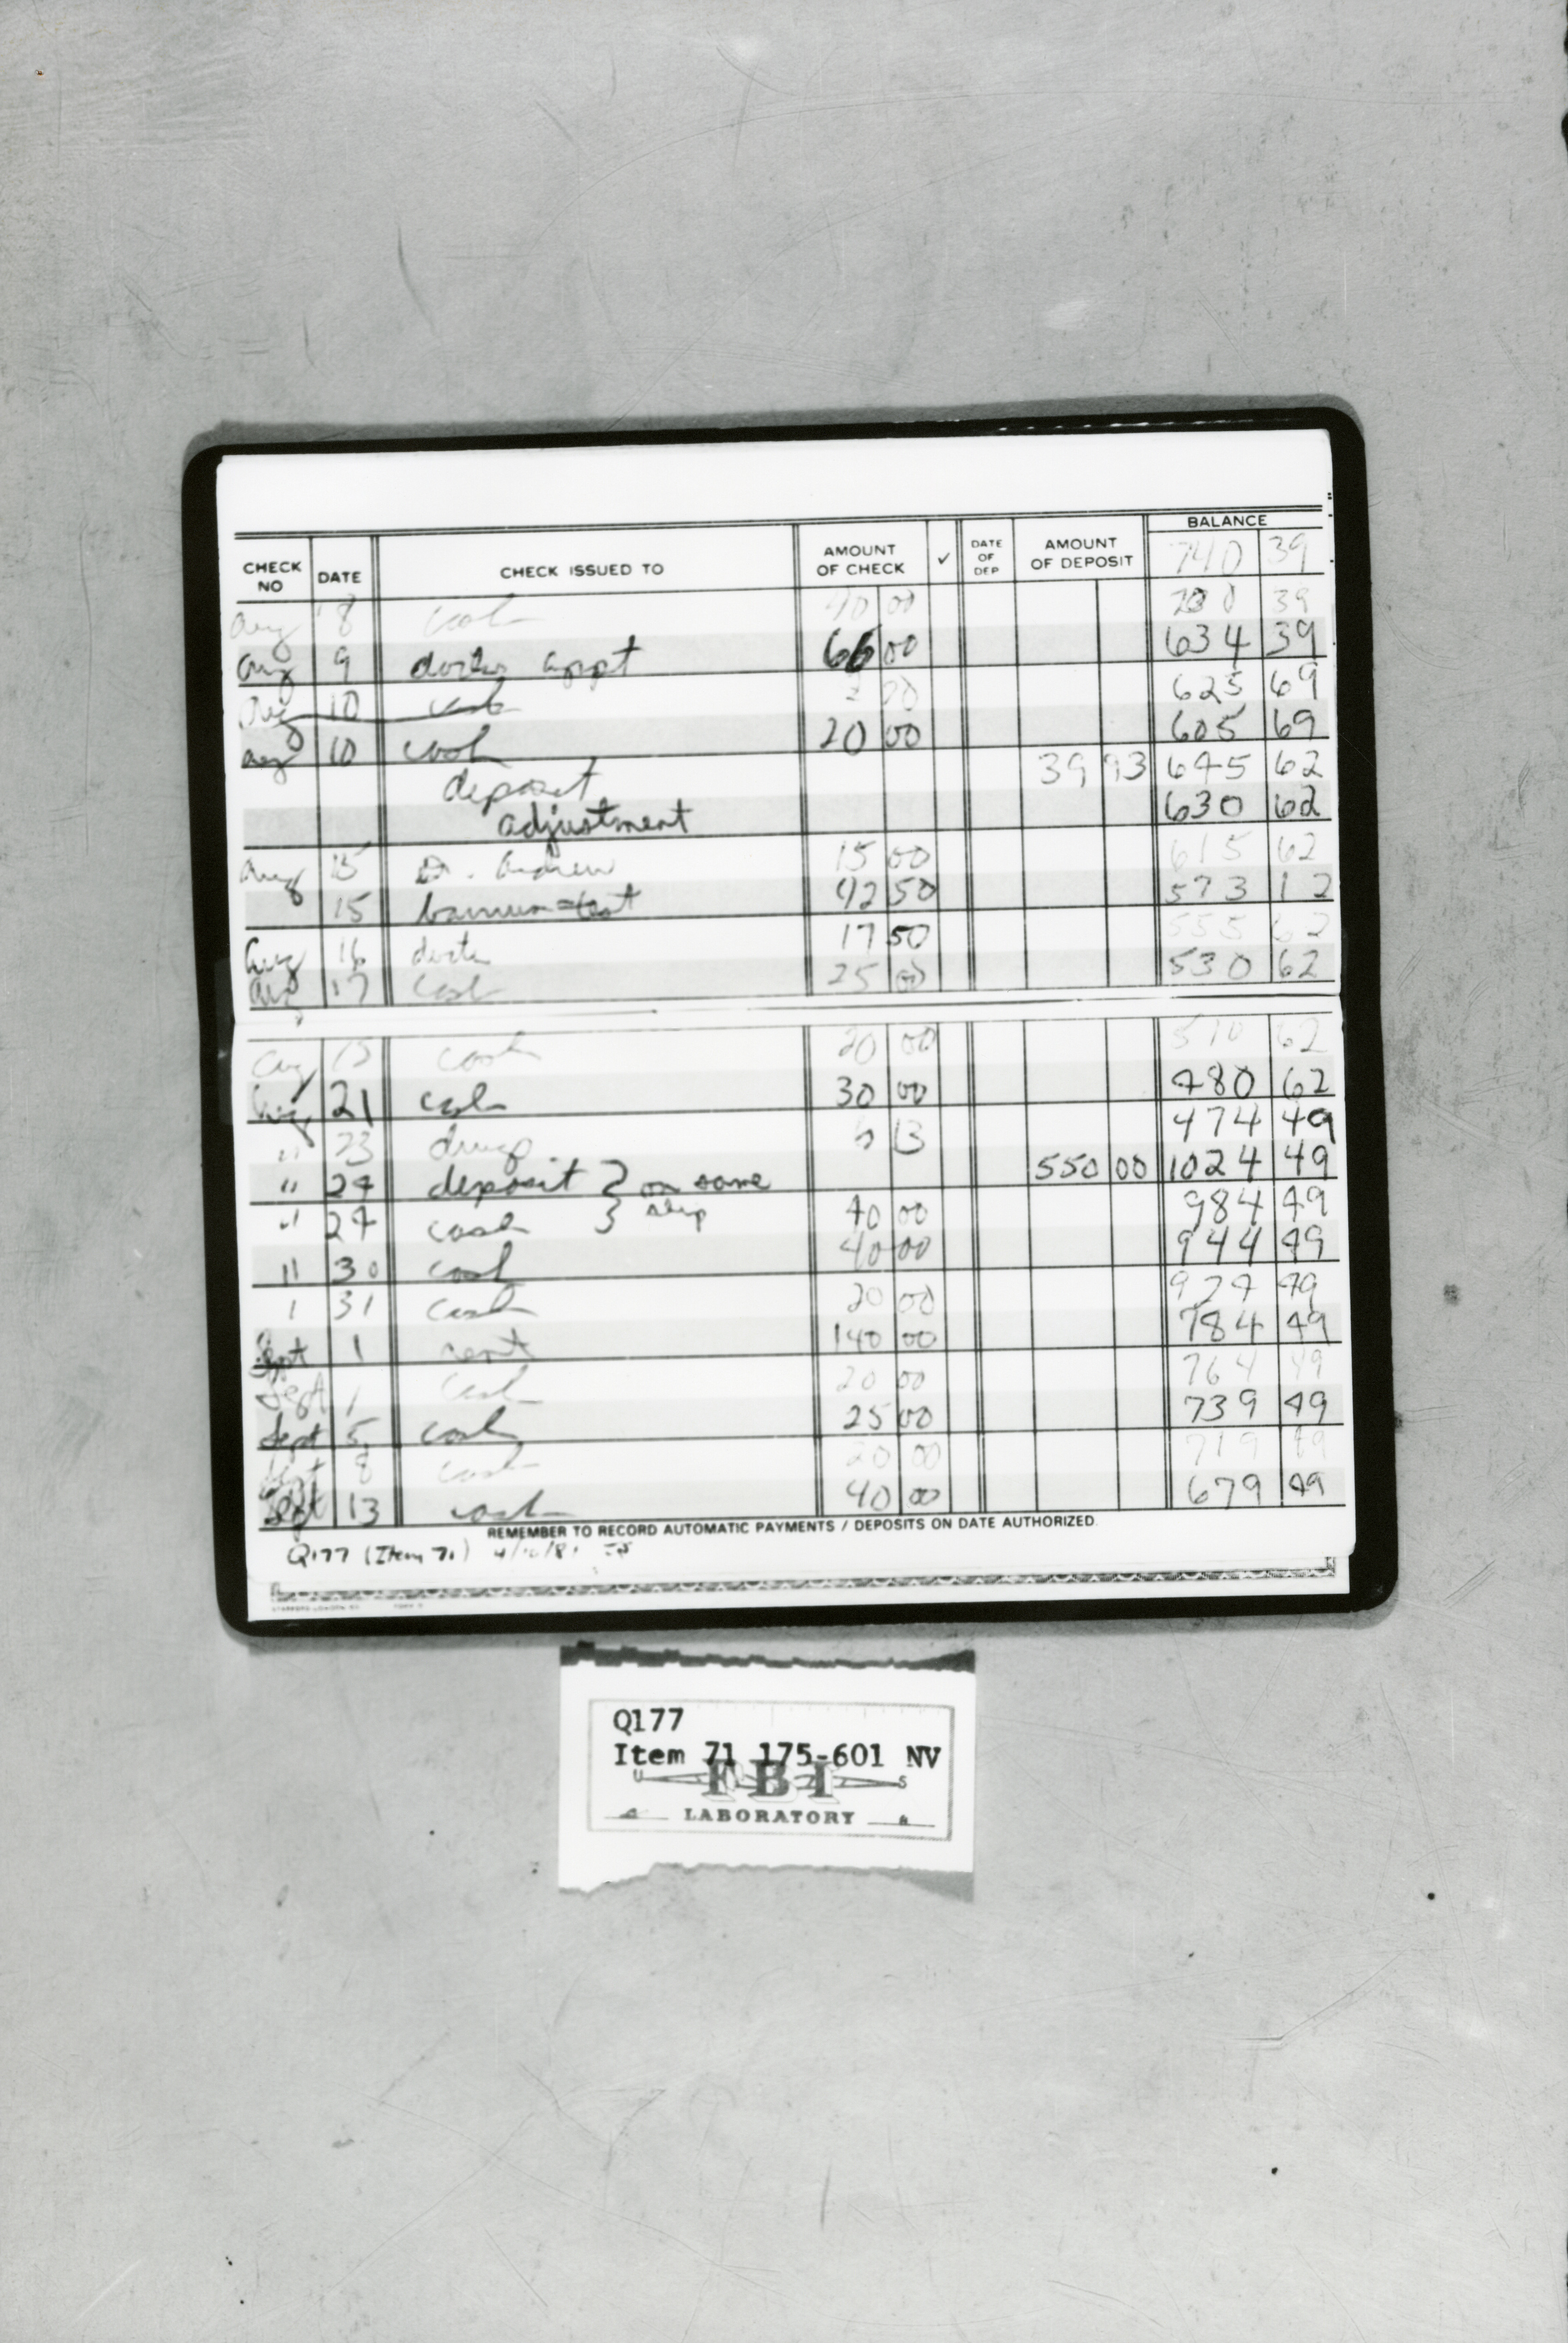 BALANCE
CHECK NO DATE CHECK ISSUED TO AMOUNT OF CHECK ✓ DATE OF DEP AMOUNT OF DEPOSIT 740 39
Aug 8 cash 40 00 700 39
Aug 9 doctor appt 66 00 634 39
Aug 10 cash 625 69
Aug 10 cash 20 00 605 69
deposit 39 93 645 62
adjustment 630 62
Aug 15 Dr. Andrew 15 00 615 62
15 barium test 42 50 573 12
Aug 16 doctor 17 50 555 62
Aug 17 cash 25 00 530 62
Aug cash 20 00 510 62
Aug 21 cash 30 00 480 62
" 23 drugs 6 13 474 49
" 24 deposit } on same 550 00 1024 49
" 24 cash } slip 40 00 984 49
" 30 cash 40 00 944 49
" 31 cash 20 00 924 49
Sept 1 rent 140 00 784 49
Sept 1 cash 20 00 764 49
Sept 5 cash 25 00 739 49
Sept 8 cash 20 00 719 49
Sept 13 cash 40 00 679 49
REMEMBER TO RECORD AUTOMATIC PAYMENTS / DEPOSITS ON DATE AUTHORIZED.
Q177 (Item 71)
Q177
Item 71 175-601 NV
U FBI S
LABORATORY